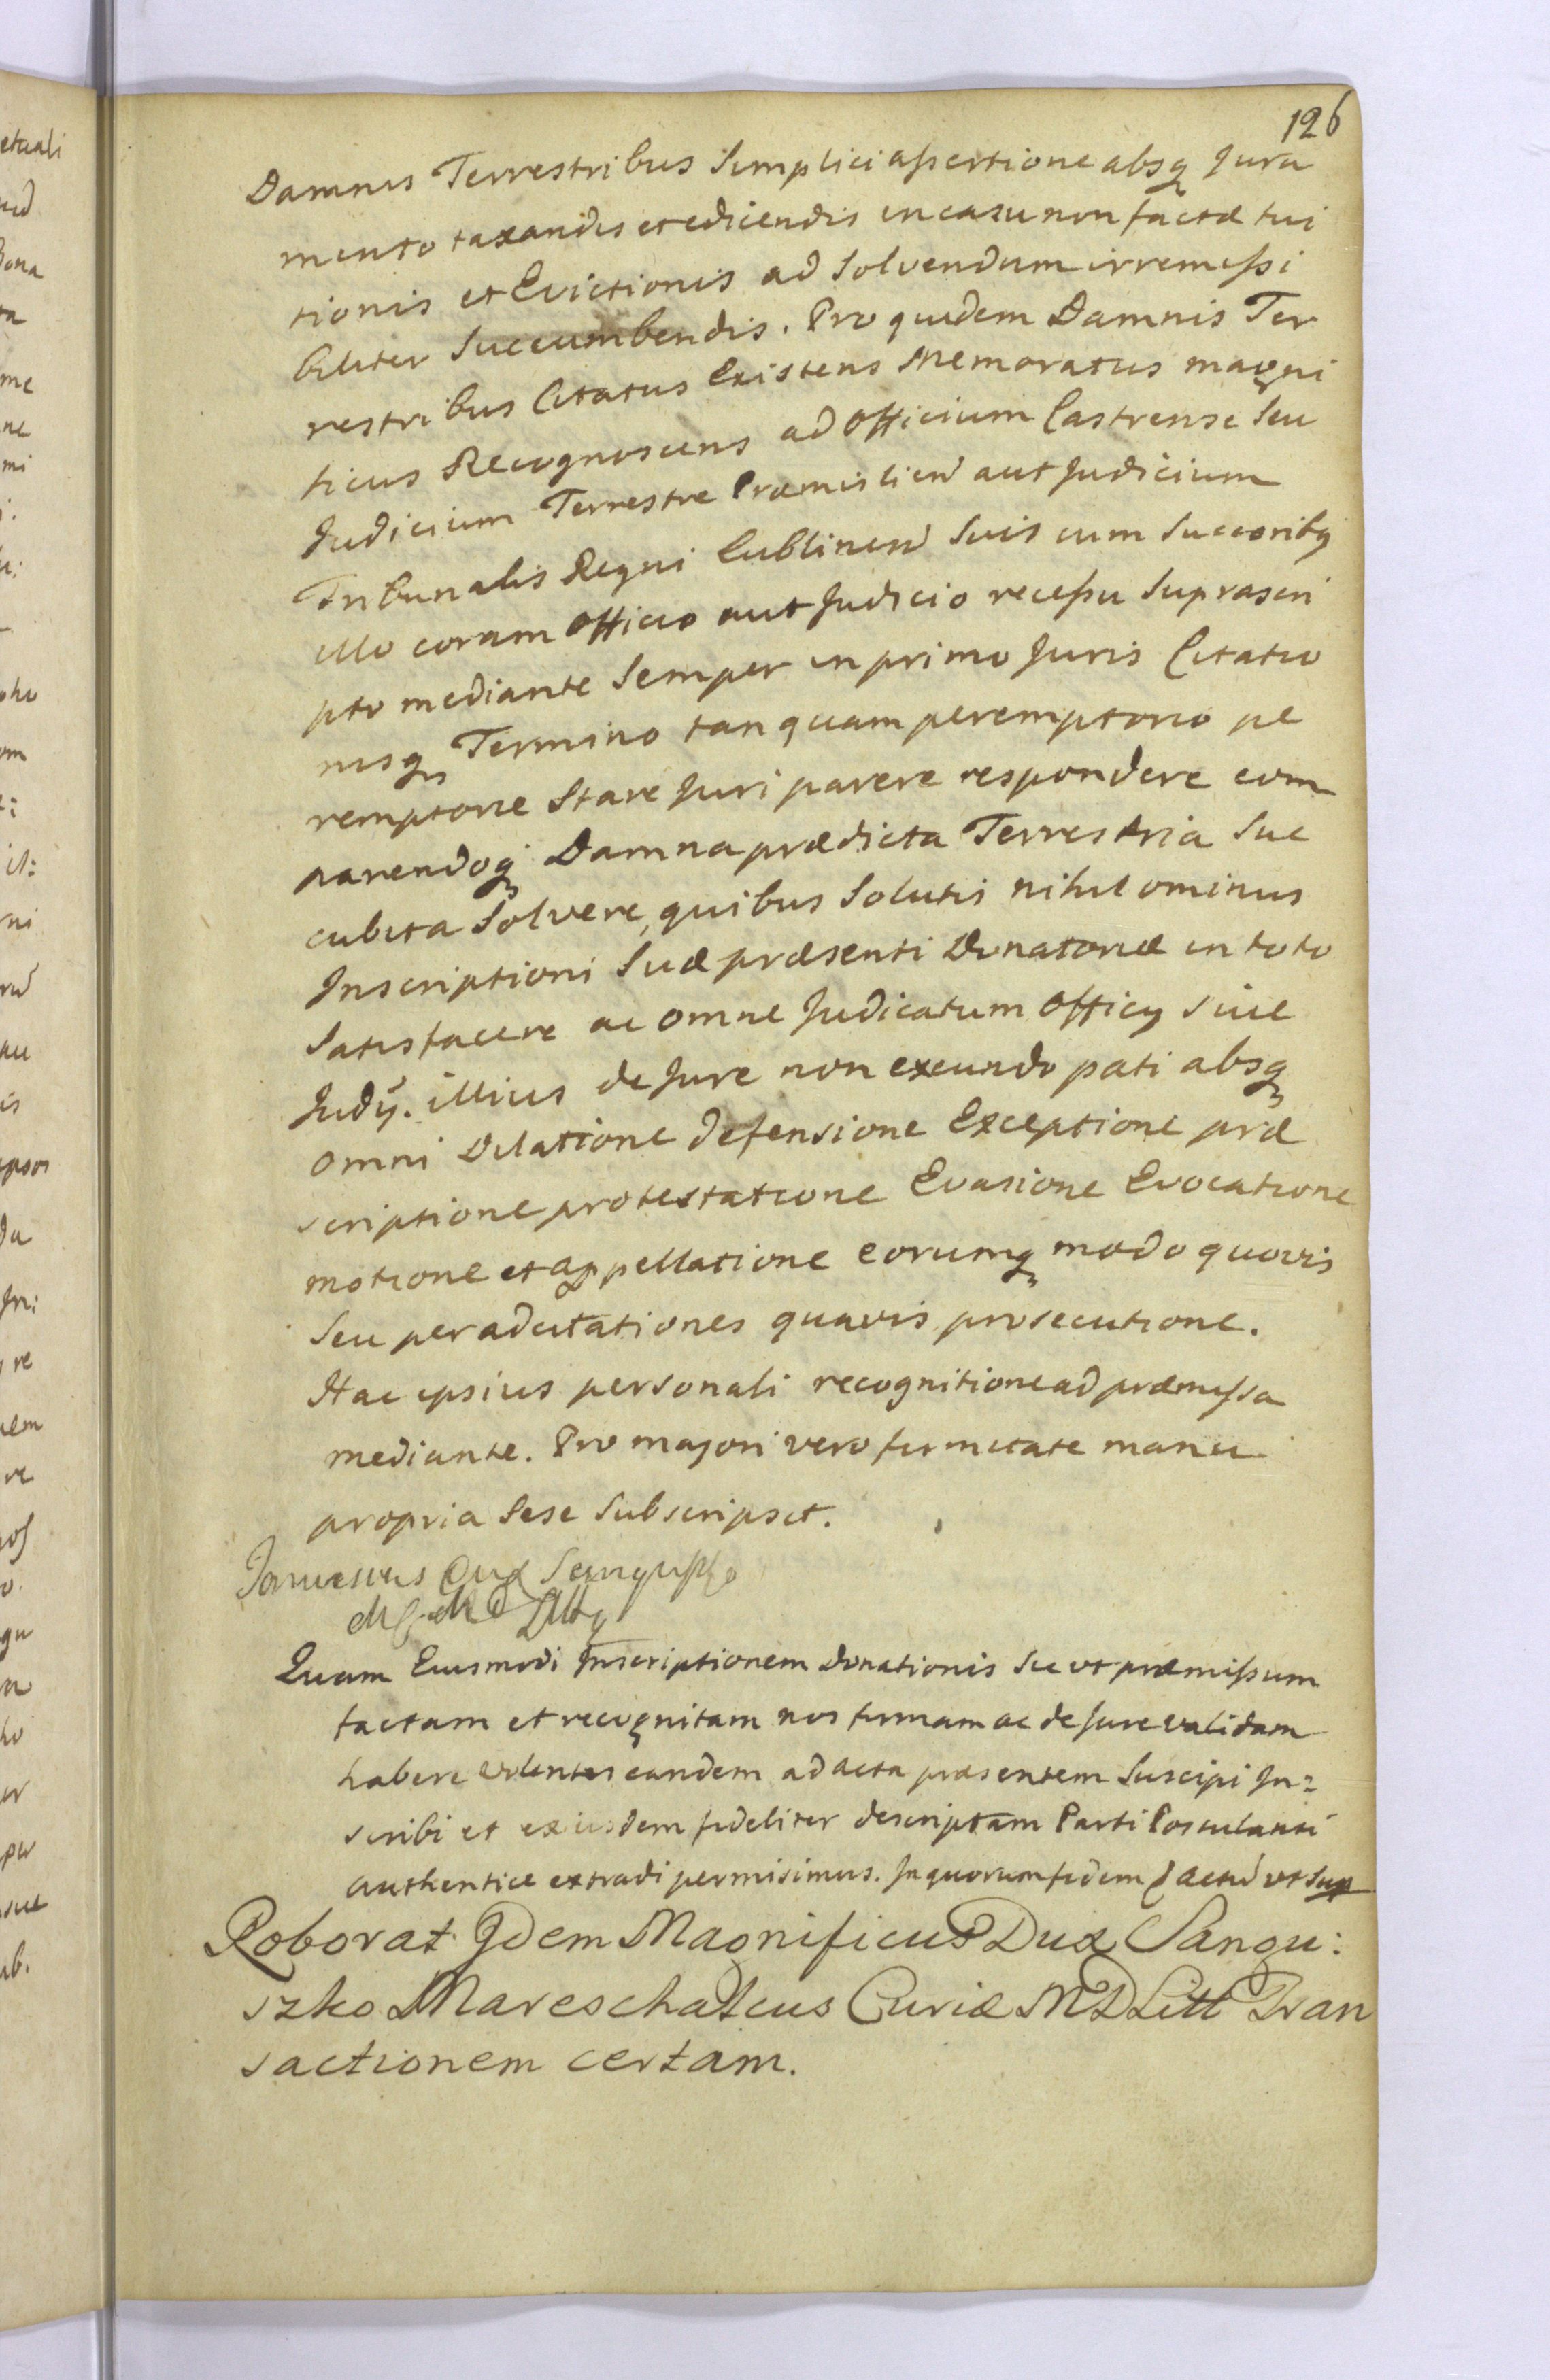 126
Damnis Terrestribus Simplici assertione absq Jura
mento taxandis et edicendis in casu non factæ tui
tionis et Evictionis ad Solvendum irremissi
biliter Succumbendis. Pro quidem Damnis Ter
restribus Citatus Existens Memoratus magni
ficus Recognoscens ad Officium Castrense Seu
Judicium Terrestre Præmislien aut Judicium
Tribunalis Regni Lublinen Suis cum Succoribq
illo coram Officio aut Judicio recessu Suprascri
pto mediante Semper in primo Juris Citatio
nisq Termino tanquam peremptorio pe
remptorie Stare Juri parere respondere com
parendoq Damna prædicta Terrestria Suc
cubita Solvere, quibus Solutis nihilominus
Inscriptioni Suæ præsenti Donatoriæ in toto
Satisfacere ac omne Judicatum Officij Sive
Judij. illius de Jure non exeundo pati absq
omni Dilatione defensione Exceptione præ
scriptione protestatione Evasione Evocatione
motione et appellatione eorumq modo quovis
Seu per adcitationes quavis prosecutione.
Hac ipsius personali recognitione ad præmissa
mediante. Pro majori vero firmitate manu
propria Sese Subscripsit.
Janussius Dux Sangusko
Quam Eiusmodi Inscriptionem Donationis Sic ut præmissum
factam et recognitam nos firmam ac de Jure validam
habere volentes eandem ad acta præsentem Suscipi In=
scribi et ex iisdem fideliter descriptam Parti Postulanti
authentice extradi permisimus. In quorum fidem Actu ut Sup
Roborat Idem Magnificus Dux Sangu:
szko Mareschalcus Curiæ MD Litt Tran
sactionem certam.